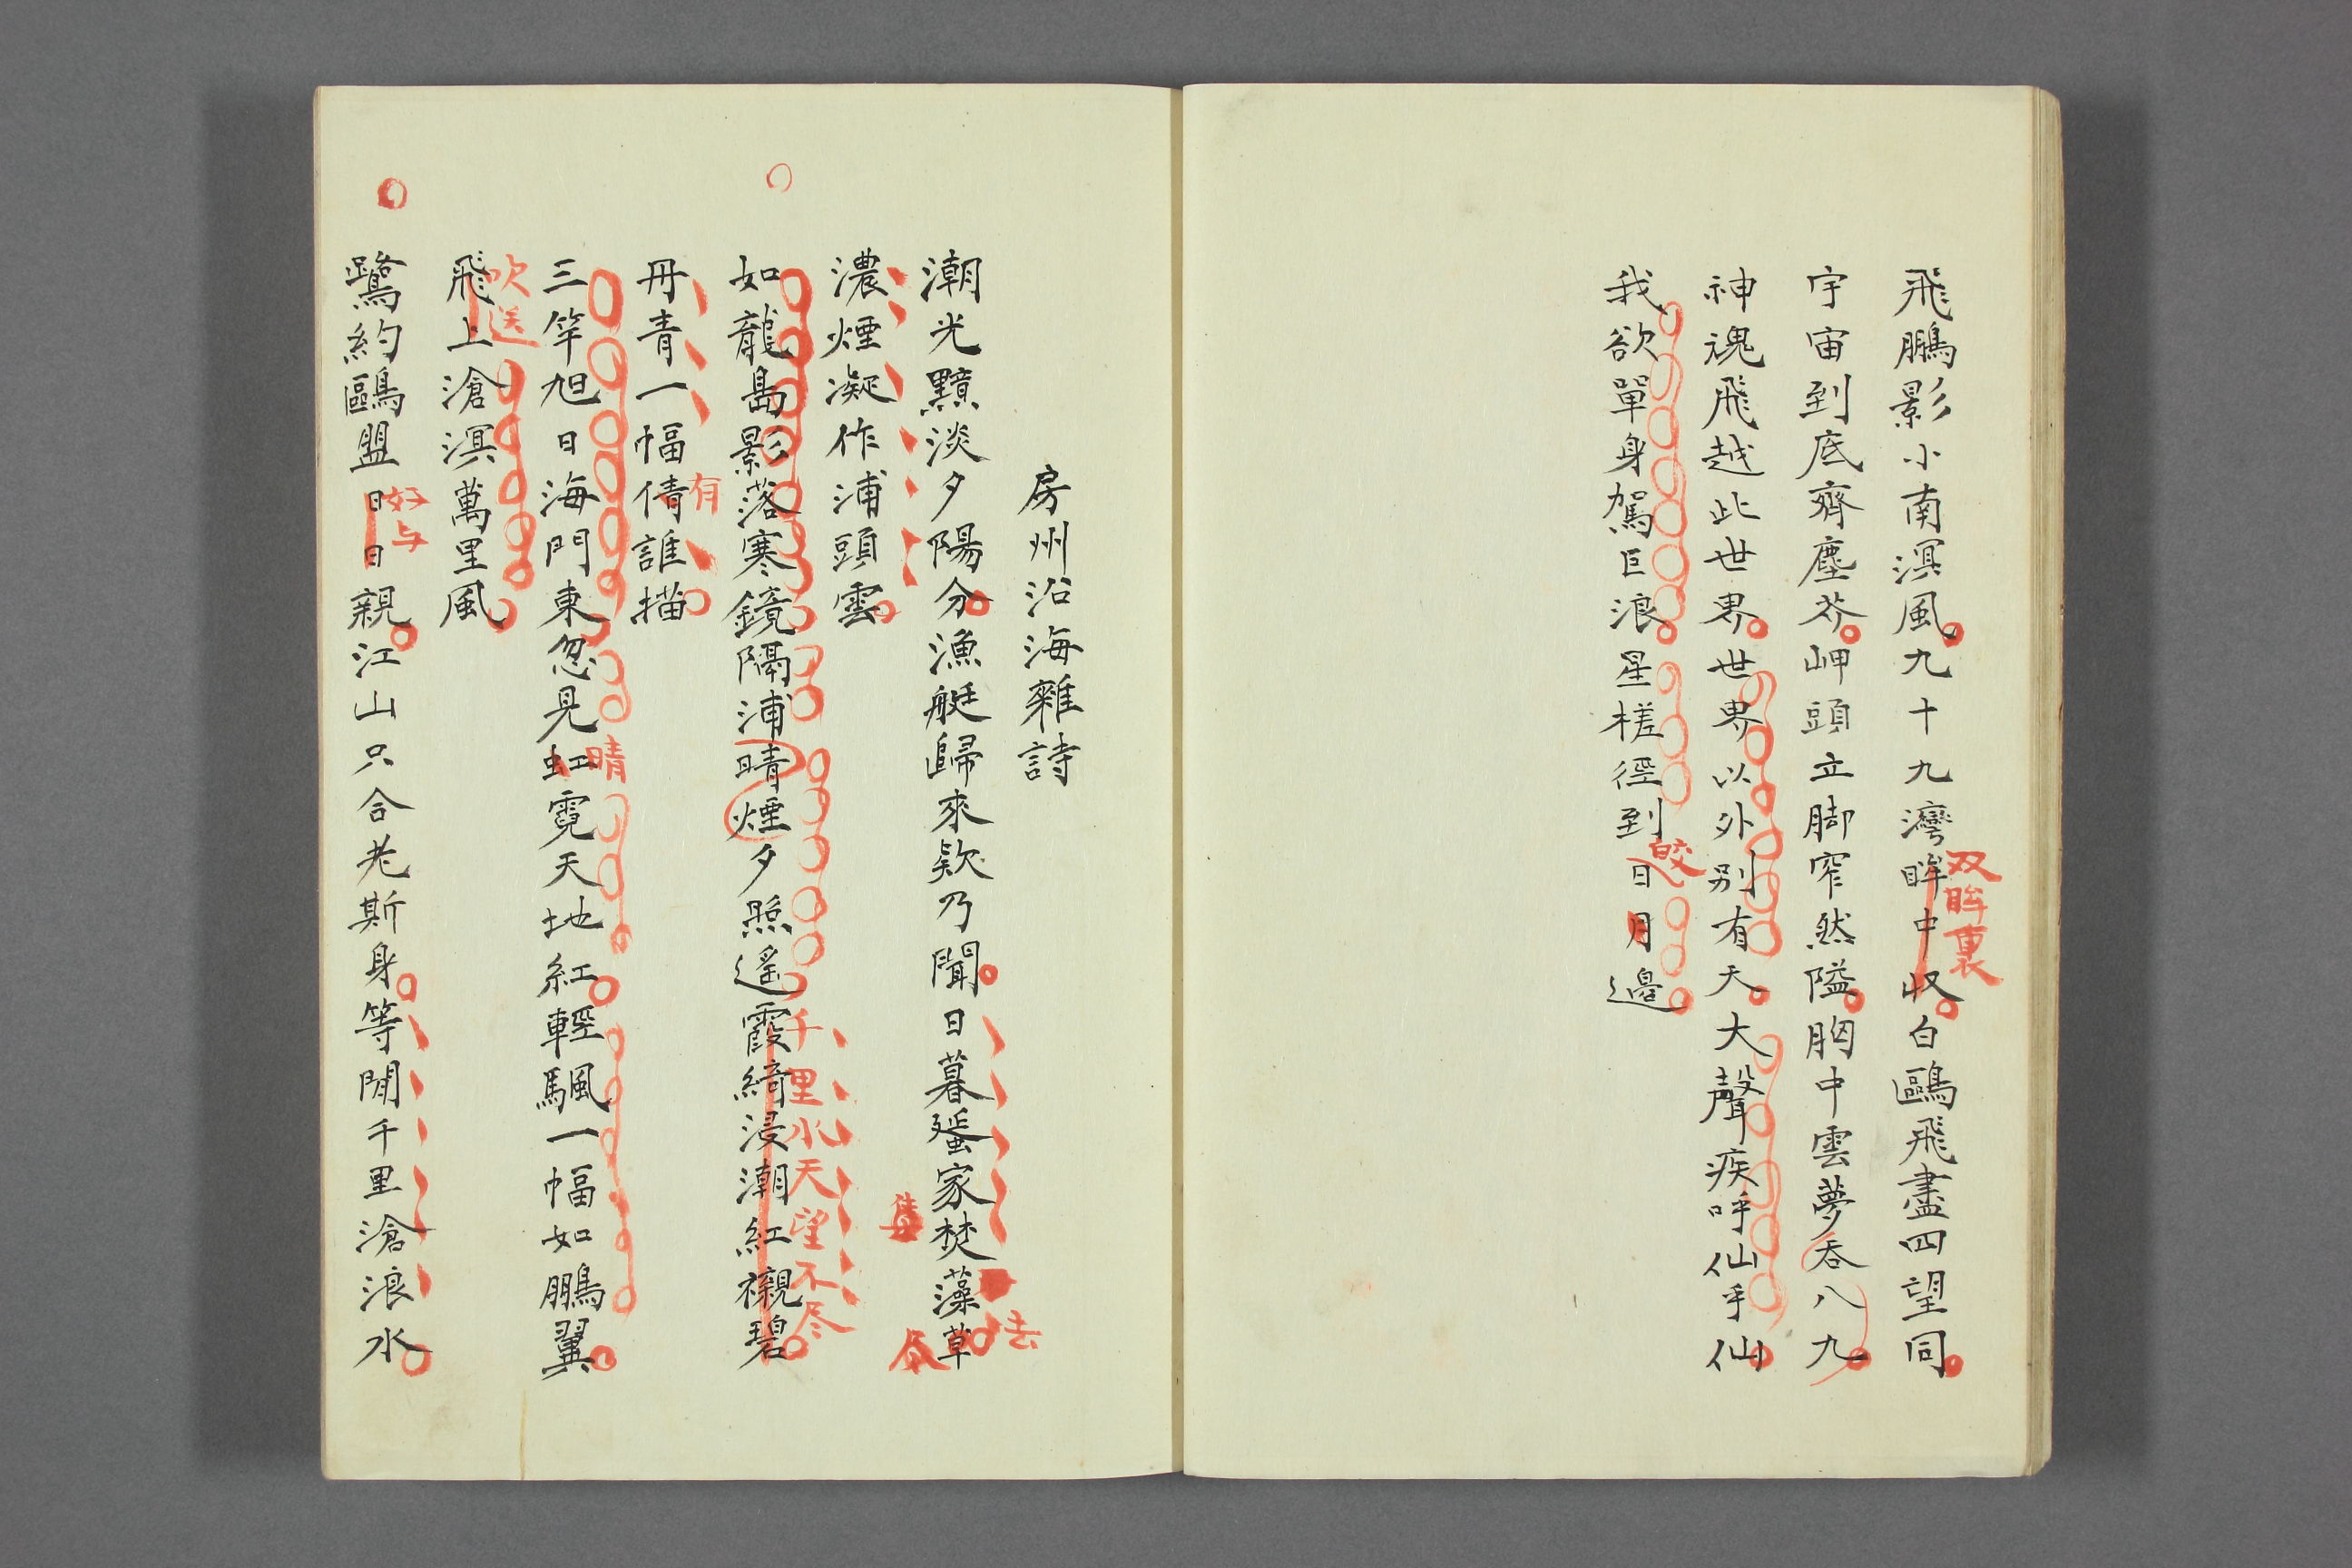 飛鵬影小南溟風九十九灣眸中収白鷗飛盡四望同
双眸裏
宇宙到底齊塵芥岬頭立脚窄然隘胸中雲夢呑八九
神魂飛越此世界世界以外別有天大聲疾呼仙乎仙
我欲單身駕巨浪星槎徑到日月邊
皎
房州沿海雜詩
潮光黯淡夕陽分漁艇歸來欵乃聞日暮蜑家焚藻草
去
濃煙凝作浦頭雲
如龍島影落寒鏡隔浦晴煙夕照遙霞綺浸潮紅襯碧
千里水天望不尽
丹青一幅倩誰描
有
三竿旭日海門東忽見虹霓天地紅輕颿一幅如鵬翼
晴
飛上滄溟萬里風
吹送
鷺約鷗盟日日親江山只合老斯身等閒千里滄浪水
好与